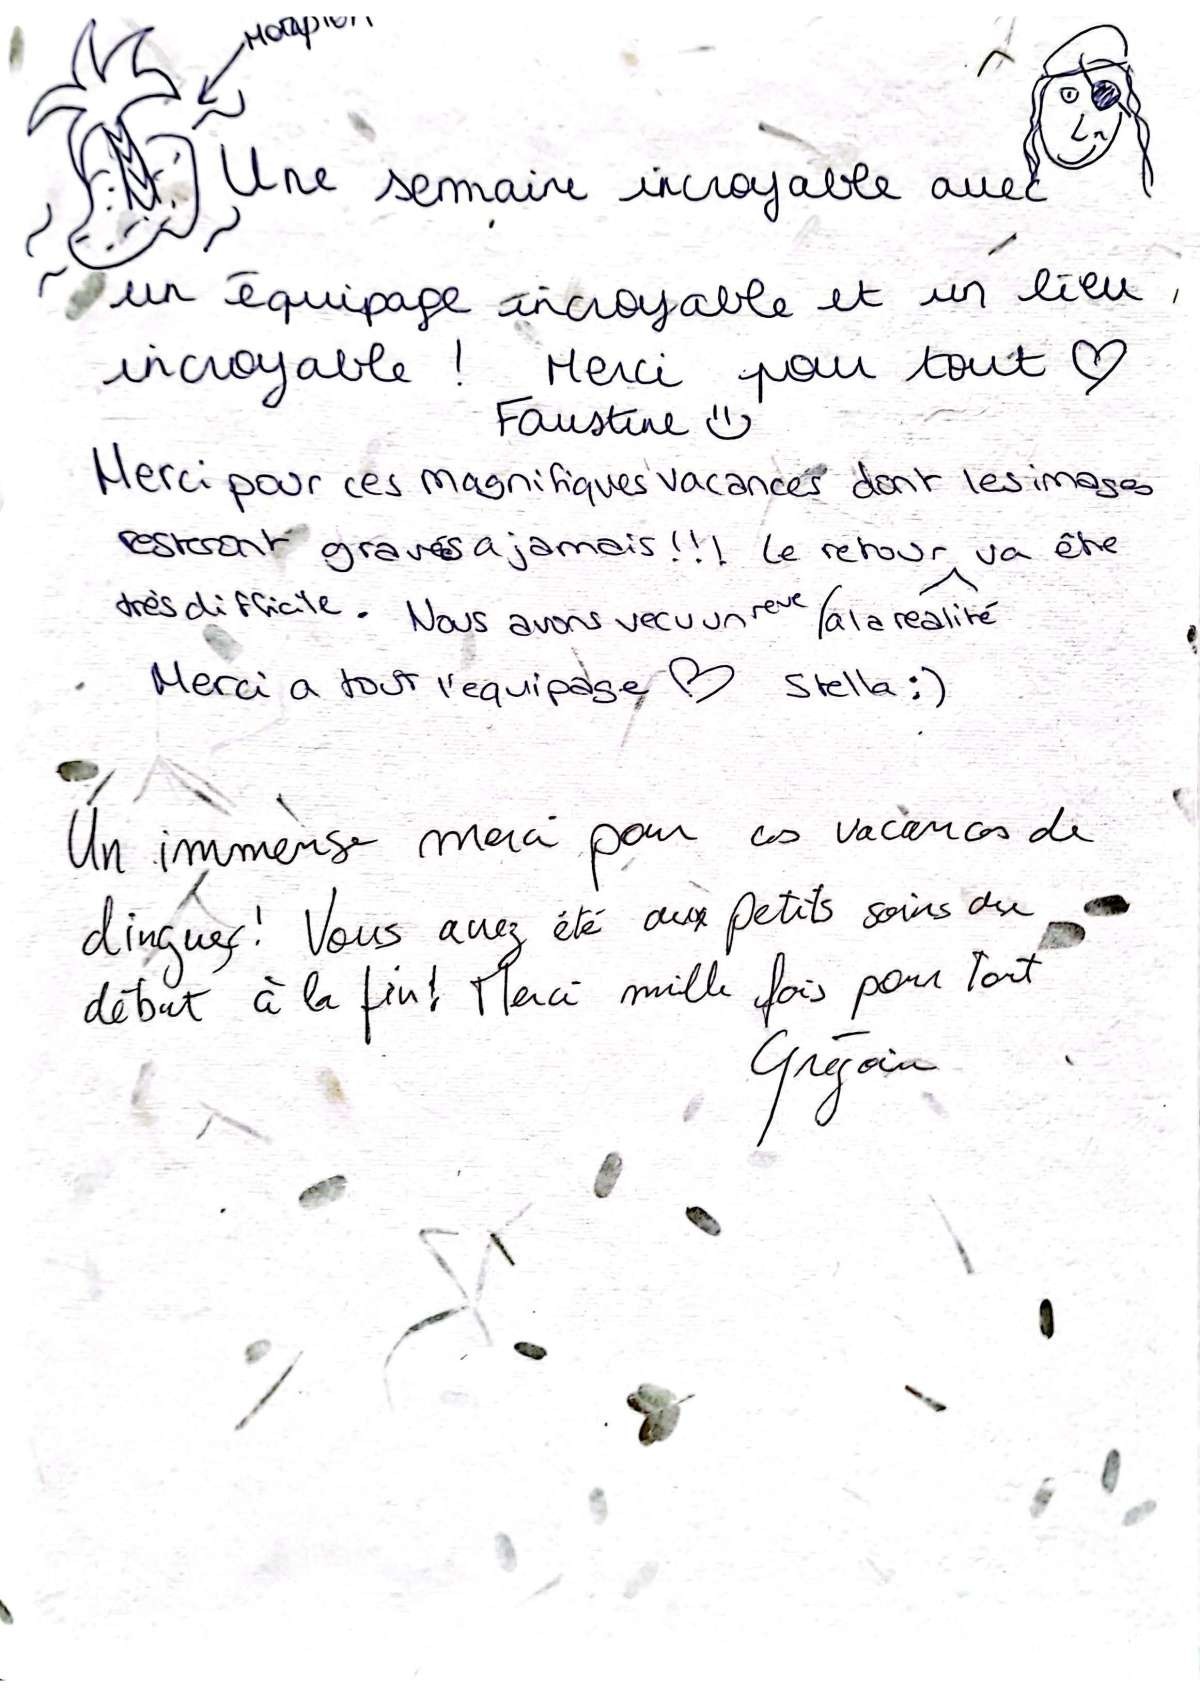 Une semaine incroyable avec
un équipage incroyable et un lieu
incroyable ! Merci pour tout ♡
Faustine
Merci pour ces magnifiques vacances dont les images
resteront gravés a jamais !!! Le retour va être
très difficile. Nous avons vecu un reve / a la réalité
Merci a tout l'equipage ♡ Stella :)
Un immense merci pour ces vacances de
dingues ! Vous avez été aux petits soins du
début à la fin ! Merci mille fois pour tout
Grégoire